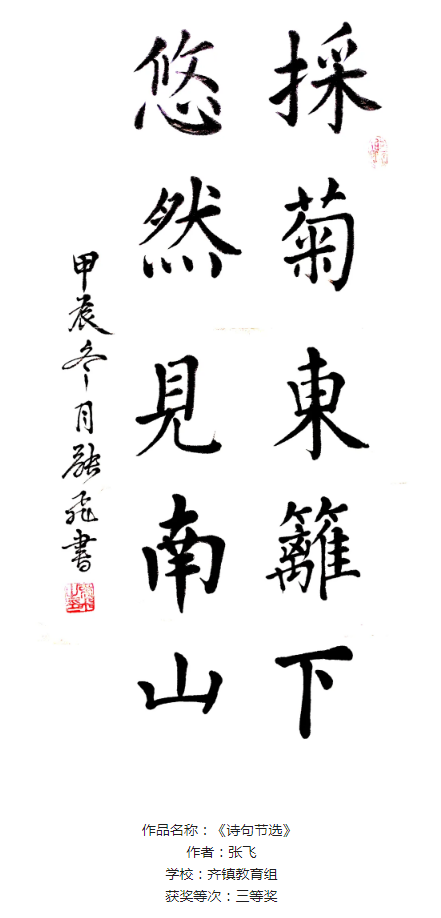 採菊東籬下
悠然見南山
甲辰冬月張飛書
作品名称：《诗句节选》
作者：张飞
学校：齐镇教育组
获奖等次：三等奖